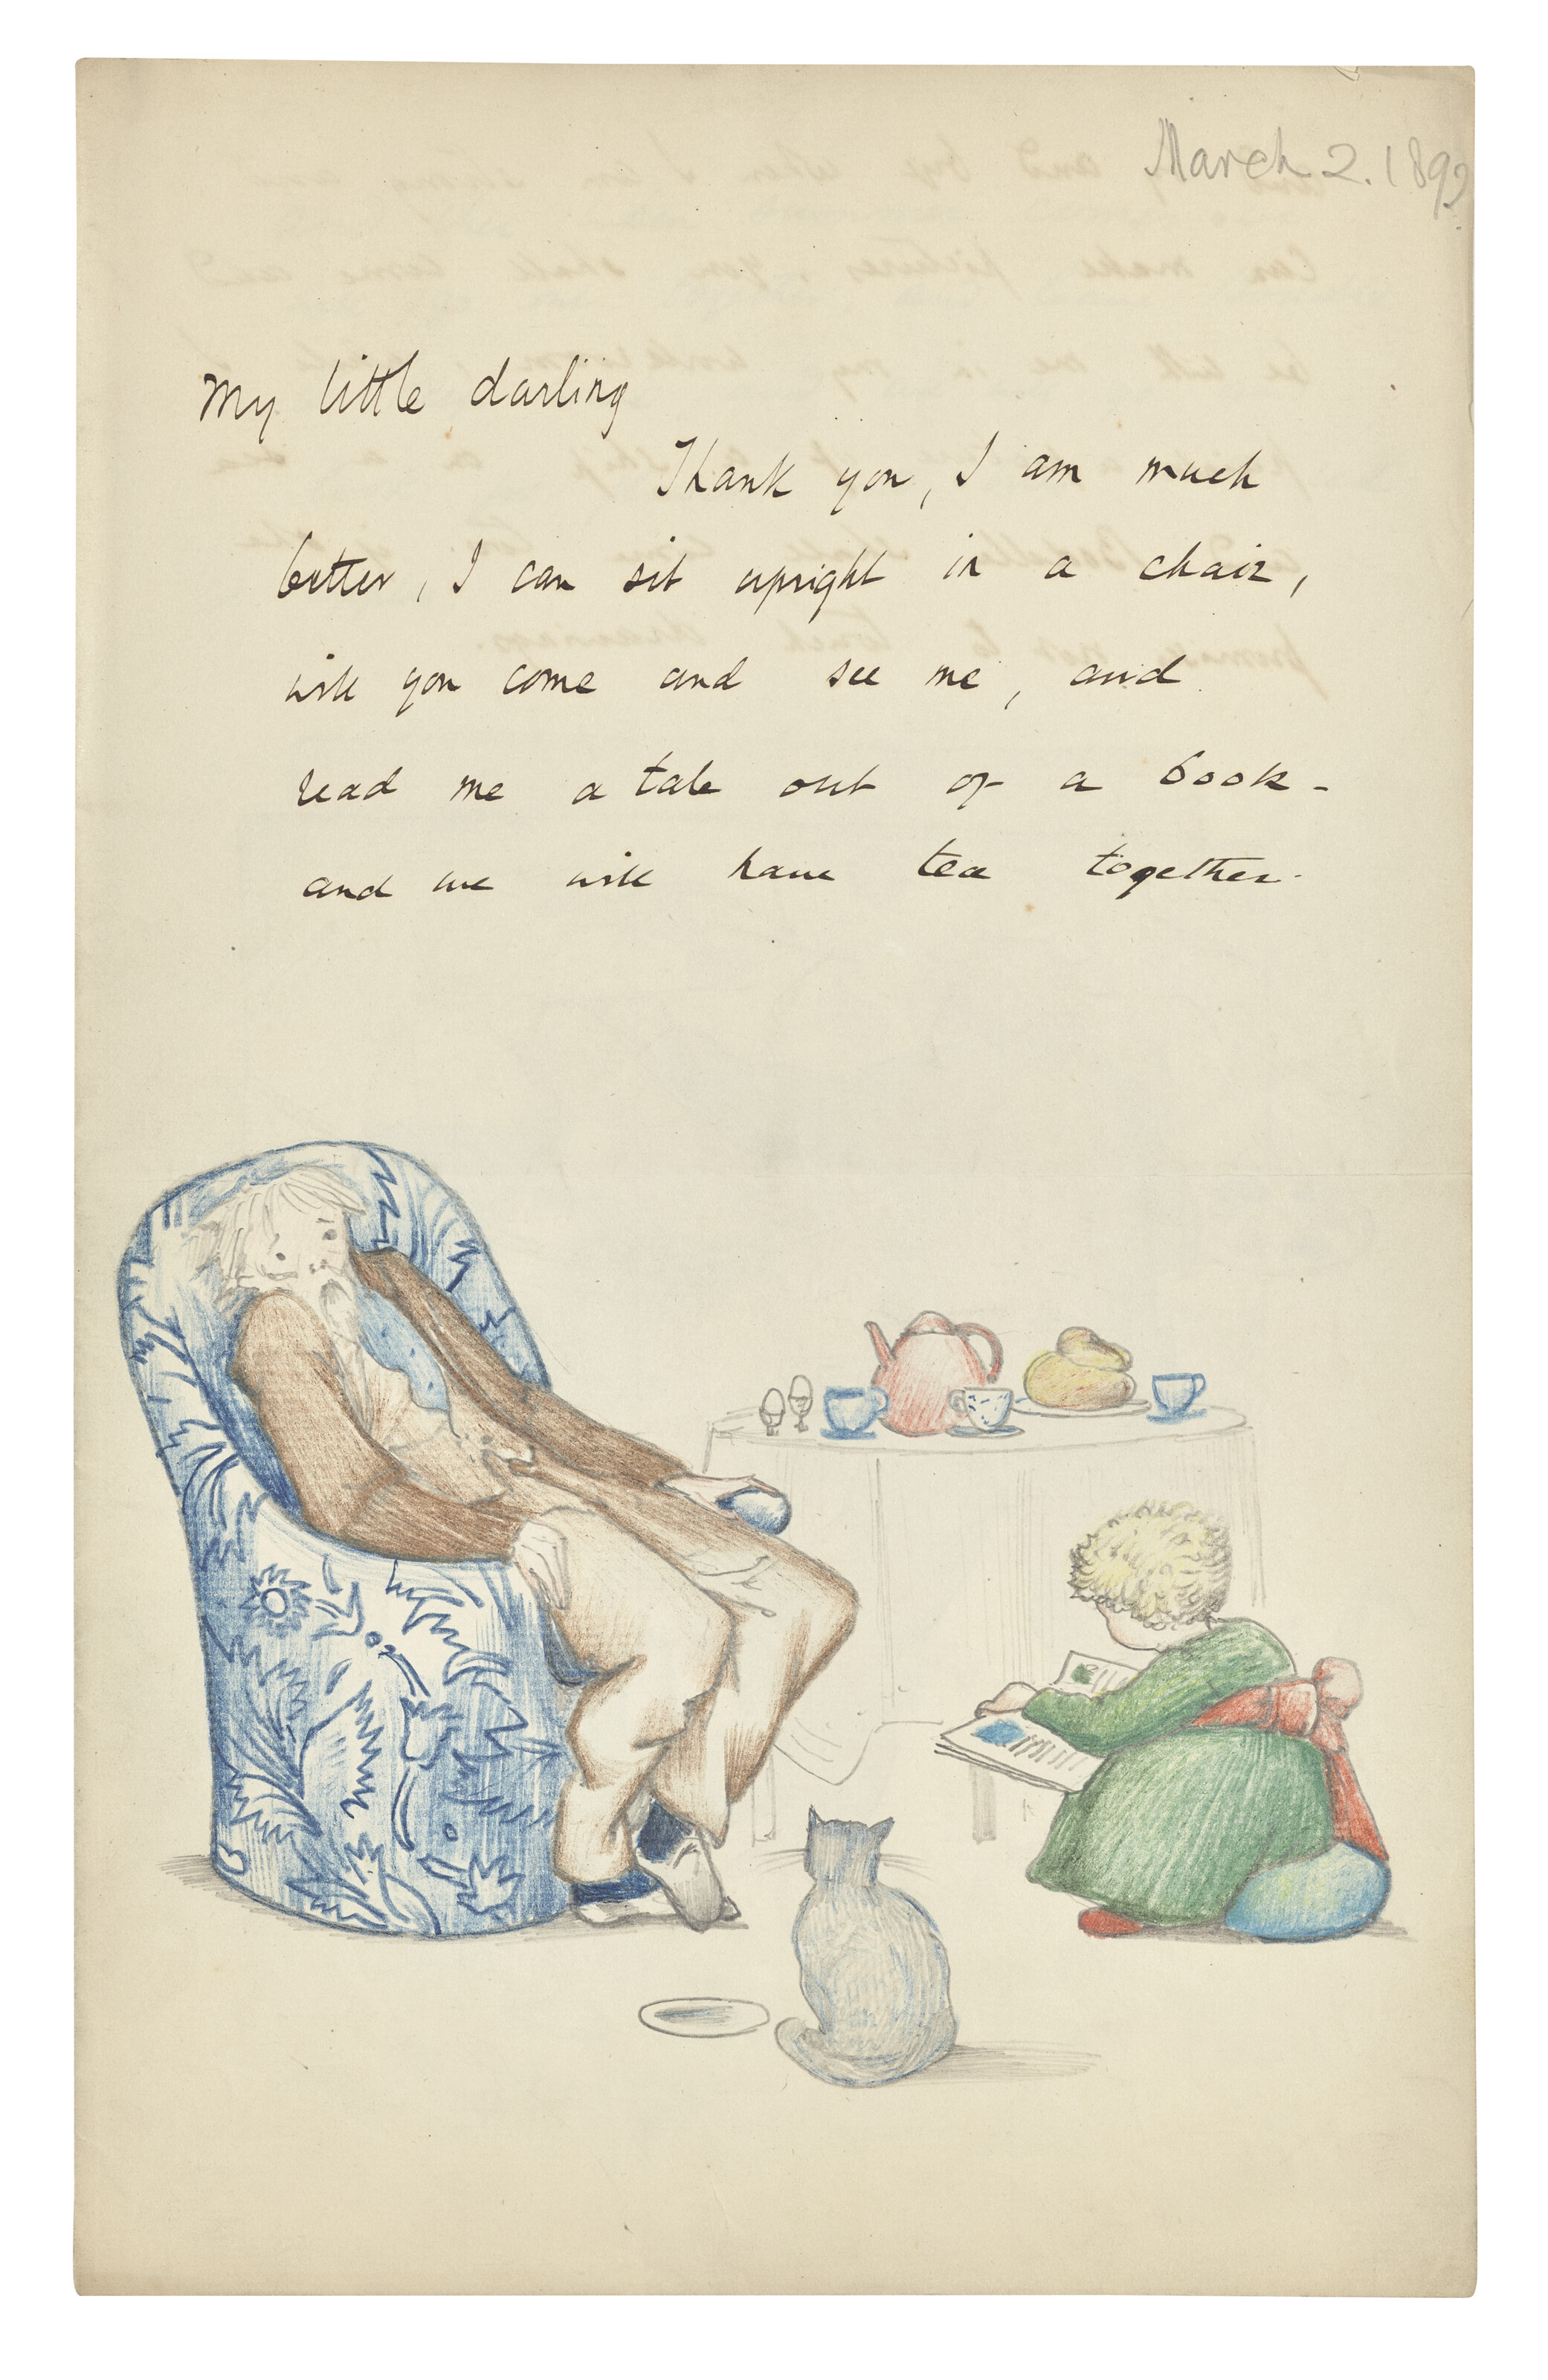 March 2. 189
My little darling
Thank you, I am much
better, I can sit upright in a chair,
will you come and see me, and
read me a tale out of a book -
and we will have tea together.